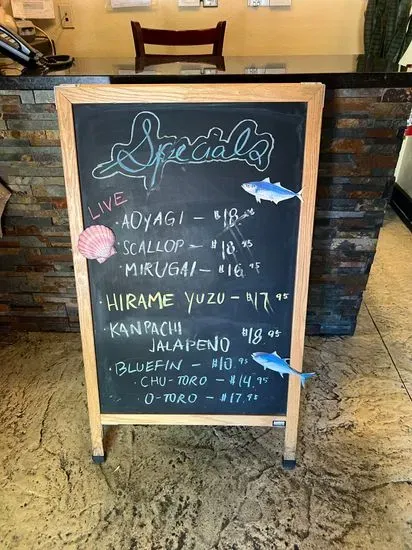 Specials
LIVE
· AOYAGI - $18.95
· SCALLOP - $18.95
· MIRUGAI - $16.95
· HIRAME YUZU - $17.95
· KANPACHI
JALAPEÑO $18.95
· BLUEFIN - $10.95
· CHU-TORO - $14.95
· O-TORO - $17.95